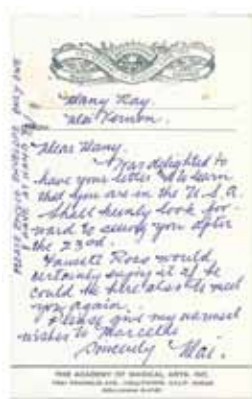 Dear Many.
Was delighted to
have your letter & to learn
that you are in the U.S.A.
Shall keenly look for-
ward to seeing you after
the 23rd.
Faucett Ross would
certainly enjoy it if he
could be here also to meet
you again.
Please give my warmest
wishes to Marcelle
Sincerely Dai.
THE ACADEMY OF MAGICAL ARTS, INC.